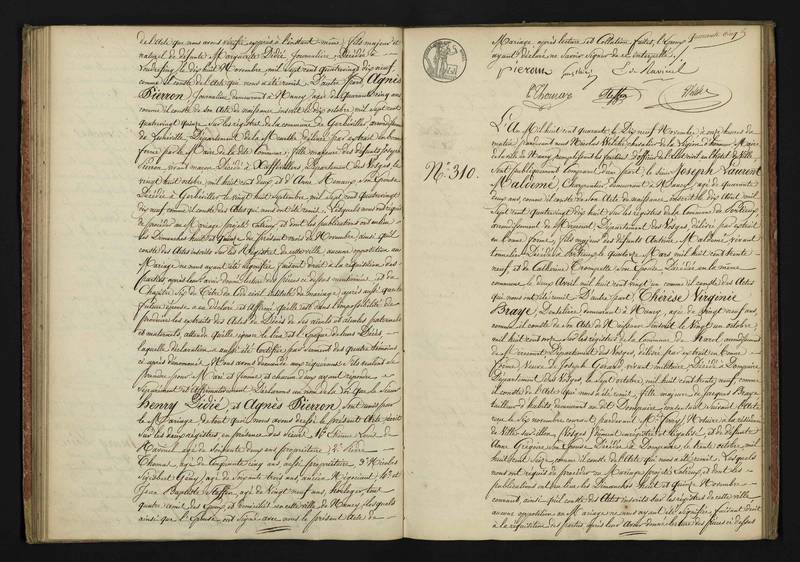 de l'acte que nous avons vérifié à l'instant même, fils majeur et
naturel de défunte Marguerite Didié, journalière, décédée à
le dix huit Novembre, mil sept cent quatrevingt dix neuf,
comme il conste de l'acte qui nous a été remis, D'autre part Agnès
Pierron, Journalière, demeurant à Nancy, âgée de quarante cinq ans
comme il conste de son Acte de naissance inscrit le dix octobre, mil sept cent
quatrevingt quinze, sur les registres de la commune de Gerbéviller, arrondissement
de Lunéville, Département de la Meurthe, délivré par extrait en bonne
forme par le Maire de la dite commune; fille majeure des défunts Joseph
Pierron, vivant maçon, Décédé à Département des Vosges, le
vingt huit octobre, mil huit cent et d'Anne son Epouse
Décédée à Gerbéviller, le vingt huit Septembre, mil sept cent quatrevingt
dix neuf comme il conste des Actes qui nous ont été remis. Lesquels nous ont requis
de procéder au Mariage projeté entr'eux, et dont les publications ont eu lieu
les Dimanches huit et Quinze du présent mois de Novembre, ainsi qu'il
conste des Actes inscrits sur les Registres de cette ville, aucune opposition au
Mariage ne nous ayant été signifiée, faisant droit à la réquisition des
parties, après leur avoir donné lecture des pièces ci dessus mentionnées, et du
Chapitre six du Titre du Code civil intitulé du mariage; après aussi que la
future épouse a eu déclaré et affirmé qu'elle est dans l'impossibilité de
produire les extraits des Actes de Décès de ses aïeuls et aïeules paternels
et maternels, attendu qu'elle ignore le lieu et l'époque de leurs Décès,
laquelle déclaration a aussi été certifiée par serment des quatre témoins
ci après dénommés, Nous avons demandé aux requérants s'ils veulent se
prendre pour Mari et femme, et chacun d'eux ayant répondu
séparément et affirmativement, Déclarons au nom de la loi que le Sieur
Henry Didié, et Agnès Pierron, sont unis par
le Mariage, de tout quoi nous avons dressé le présent Acte, écrit
sur les deux registres, en présence des Sieurs 1°. Etienne Louis de
âgé de soixante deux ans, propriétaire, 2°. Pierre
Thomas, âgé de Cinquante cinq ans, aussi propriétaire, 3°. Nicolas
âgé de Soixante trois ans, ancien Négociant; 4°. et
Jean Baptiste Steffen, âgé de Vingt neuf ans, horloger, tous
quatre amis des Epoux, et domiciliés en cette ville de Nancy, lesquels
ainsi que l'épouse, ont signé avec nous le présent Acte de
quarante cinq
Mariage, après lecture et Collation faites, l'Epoux
ayant déclaré ne savoir Signer de ce interpellé.
pierron
Thomas Steffen
N°. 310.
L'An Mil huit cent quarante, le Dix neuf Novembre, à onze heures du
matin, pardevant nous Nicolas chevalier de la Légion d'honneur, Maire
de la ville de Nancy, remplissant les fonctions d'officier de l'état civil en l'hôtel de Ville
Sont publiquement comparus d'une part, le Sieur Joseph Laurent
Maldemé, Charpentier, demeurant à Nancy, âgé de quarante
deux ans, comme il conste de son Acte de naissance inscrit le dix Août mil
sept cent quatrevingt dix huit, sur les registres de la Commune de
arrondissement de Mirecourt, Département des Vosges, délivré par extrait
en bonne forme, fils majeur des défunts Antoine Maldemé, vivant
tonnelier, Décédé à le quatorze Mars mil huit cent trente
neuf, et de Catherine Trompette, son Epouse, Décédée en la même
commune le deux Avril, mil huit cent vingt un, comme il conste des Actes
qui nous ont été remis, D'autre part, Thérèse Virginie
Braye, Dentelière, demeurant à Nancy, âgée de Vingt neuf ans,
comme il conste de son Acte de Naissance, inscrit le Vingt un octobre,
mil huit cent onze, sur les registres de la commune de Harol, arrondissement
de Mirecourt, Département des Vosges, délivré par extrait en bonne
forme, Veuve de Joseph Gérard, vivant militaire, Décédé à Dompaire,
Département des Vosges, le Sept octobre, mil huit cent trente neuf, comme
il conste de l'acte qui nous a été remis, fille majeure de Jacques Braye,
tailleur d'habits, demeurant au dit Dompaire, consentant suivant Acte
reçu le Six novembre courant, pardevant Me. Notaire à la résidence
de Ville sur illon, Vosges, dûment enregistré et légalisé, et de défunte
Anne Grégoire, son Epouse, Décédée à Dompaire, le huit octobre, mil
huit cent Seize, comme il conste de l'Acte, qui nous a été remis. Lesquels
nous ont requis de procéder au Mariage projeté entr'eux, et dont les
publications ont eu lieu les Dimanches huit et quinze Novembre
courant, ainsi qu'il conste des Actes inscrits sur les registres de cette ville,
aucune opposition au Mariage ne nous ayant été signifiée, faisant droit
à la réquisition des parties, après leur avoir donné lecture des pièces ci dessus